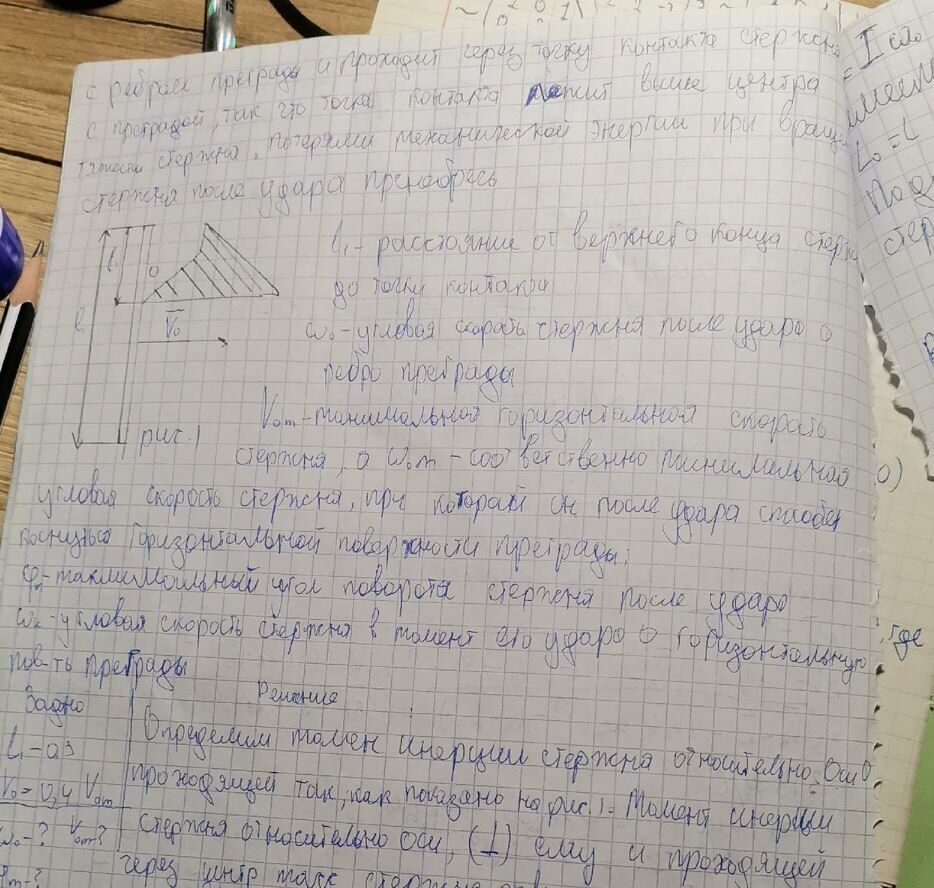 с ребром преграды и проходит через точку контакта стержня
с преградой, так что точка контакта лежит выше центра
тяжести стержня. Потерями механической энергии при враще
стержня после удара пренебречь
l₁ - расстояние от верхнего конца стерж
до точки контакта
l₁
O
l
V̅₀
рис. 1
ω₀ - угловая скорость стержня после удара о
ребро преграды
V₀m - минимальной горизонтальной скорость
стержня, а ω₀m - соответственно минимальная
угловая скорость стержня, при которой он после удара способен
коснуться горизонтальной поверхности преграды.
φm - максимальный угол поворота стержня после удара
ωк - угловая скорость стержня в момент его удара о горизонтальную
пов-ть преграды
Задано
Решение
V₀ = 0,4 V₀m
ω₀ - ? V₀m ?
φm - ?
Определим момен инерции стержня относительно оси О
проходящей так, как показано на рис. 1. Момент инерции
стержня относительно оси, (⊥) ему и проходящей
через центр масс стержня
= I
L₀ = L
где